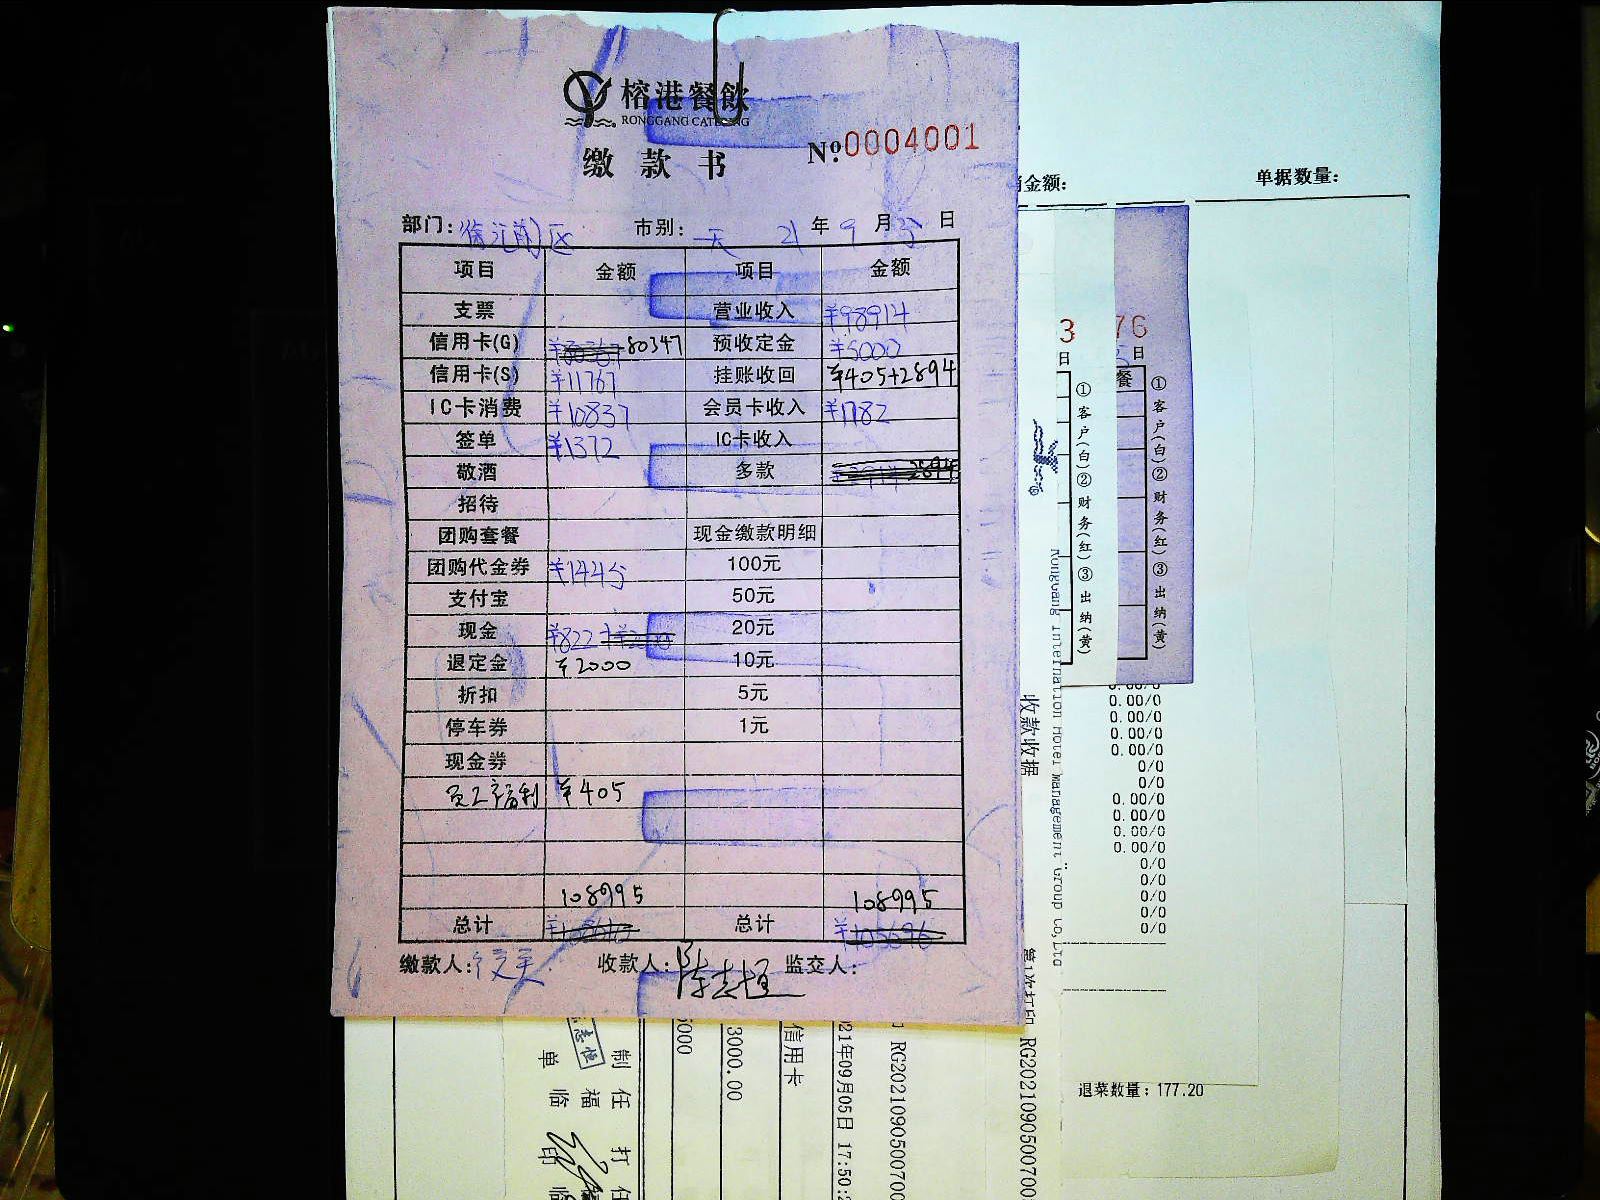 榕港餐飲
RONGGANG CATERING
缴款书 Nº 0004001
部门: 市别: 一天 21年9月5日
项目 金额 项目 金额
支票 营业收入 ¥98914
信用卡(G) 80347 预收定金 ¥5000
信用卡(S) ¥11767 挂账收回 ¥405+2894
IC卡消费 ¥10837 会员卡收入 ¥1782
签单 ¥1372 IC卡收入
敬酒 多款 2894
招待
团购套餐 现金缴款明细
团购代金券 ¥1445 100元
支付宝 50元
现金 ¥822 20元
退定金 ¥2000 10元
折扣 5元
停车券 1元
现金券
员工福利 ¥405
108995 108995
总计 总计
缴款人: 收款人: 陈志恒 监交人:
金额: 单据数量:
3 76
日 日
餐
①客户(白)②财务(红)③出纳(黄)
①客户(白)②财务(红)③出纳(黄)
Ronggang Internation Hotel Management Group Co,Ltd
收款收据
第1次打印
0.00/0
0.00/0
0.00/0
0.00/0
0.00/0
0/0
0/0
0.00/0
0.00/0
0.00/0
0.00/0
0/0
0/0
0/0
0/0
0/0
退菜数量: 177.20
RG2021090500700
RG2021090500700
21年09月05日 17:50:2
信用卡
3000.00
5000
志恒
制单
任福临
打印
任福临